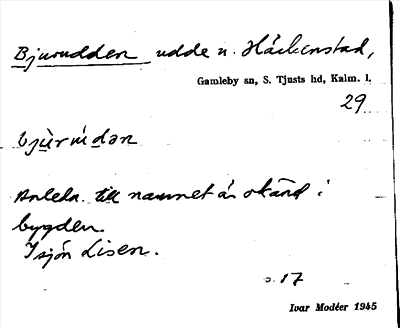 Bjurudden udde n. Häckenstad,
Gamleby sn, S. Tjusts hd, Kalm. l.
29
bjùrùdən
Anledn. till namnet är okänd i
bygden.
I sjön Lisen.
s. 17
Ivar Modéer 1945